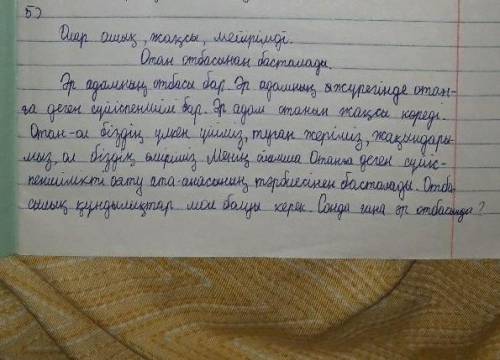 5)
Олар ашық, жақсы, мейірімді.
Отан отбасынан басталады.
Әр адамның отбасы бар. Әр адамның жүрегінде отан-
ға деген сүйіспеншілік бар. Әр адам отанын жақсы көреді.
Отан-ол біздің үлкен үйіміз, туған жеріміз, жақындары-
мыз, ол біздің өміріміз. Менің ойымша Отанға деген сүйіс-
пеншілікті ояту ата-анасының тәрбиесінен басталады. Отба-
сылық құндылықтар мол болуы керек. Сонда ғана әр отбасында?